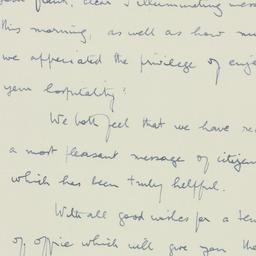 clear & illuminating mess
this morning, as well as how mu
we appreciated the privilege of enjo
your hospitality!
We both feel that we have re
a most pleasant message of citizen
which has been truly helpful.
With all good wishes for a ter
of office which will give you the